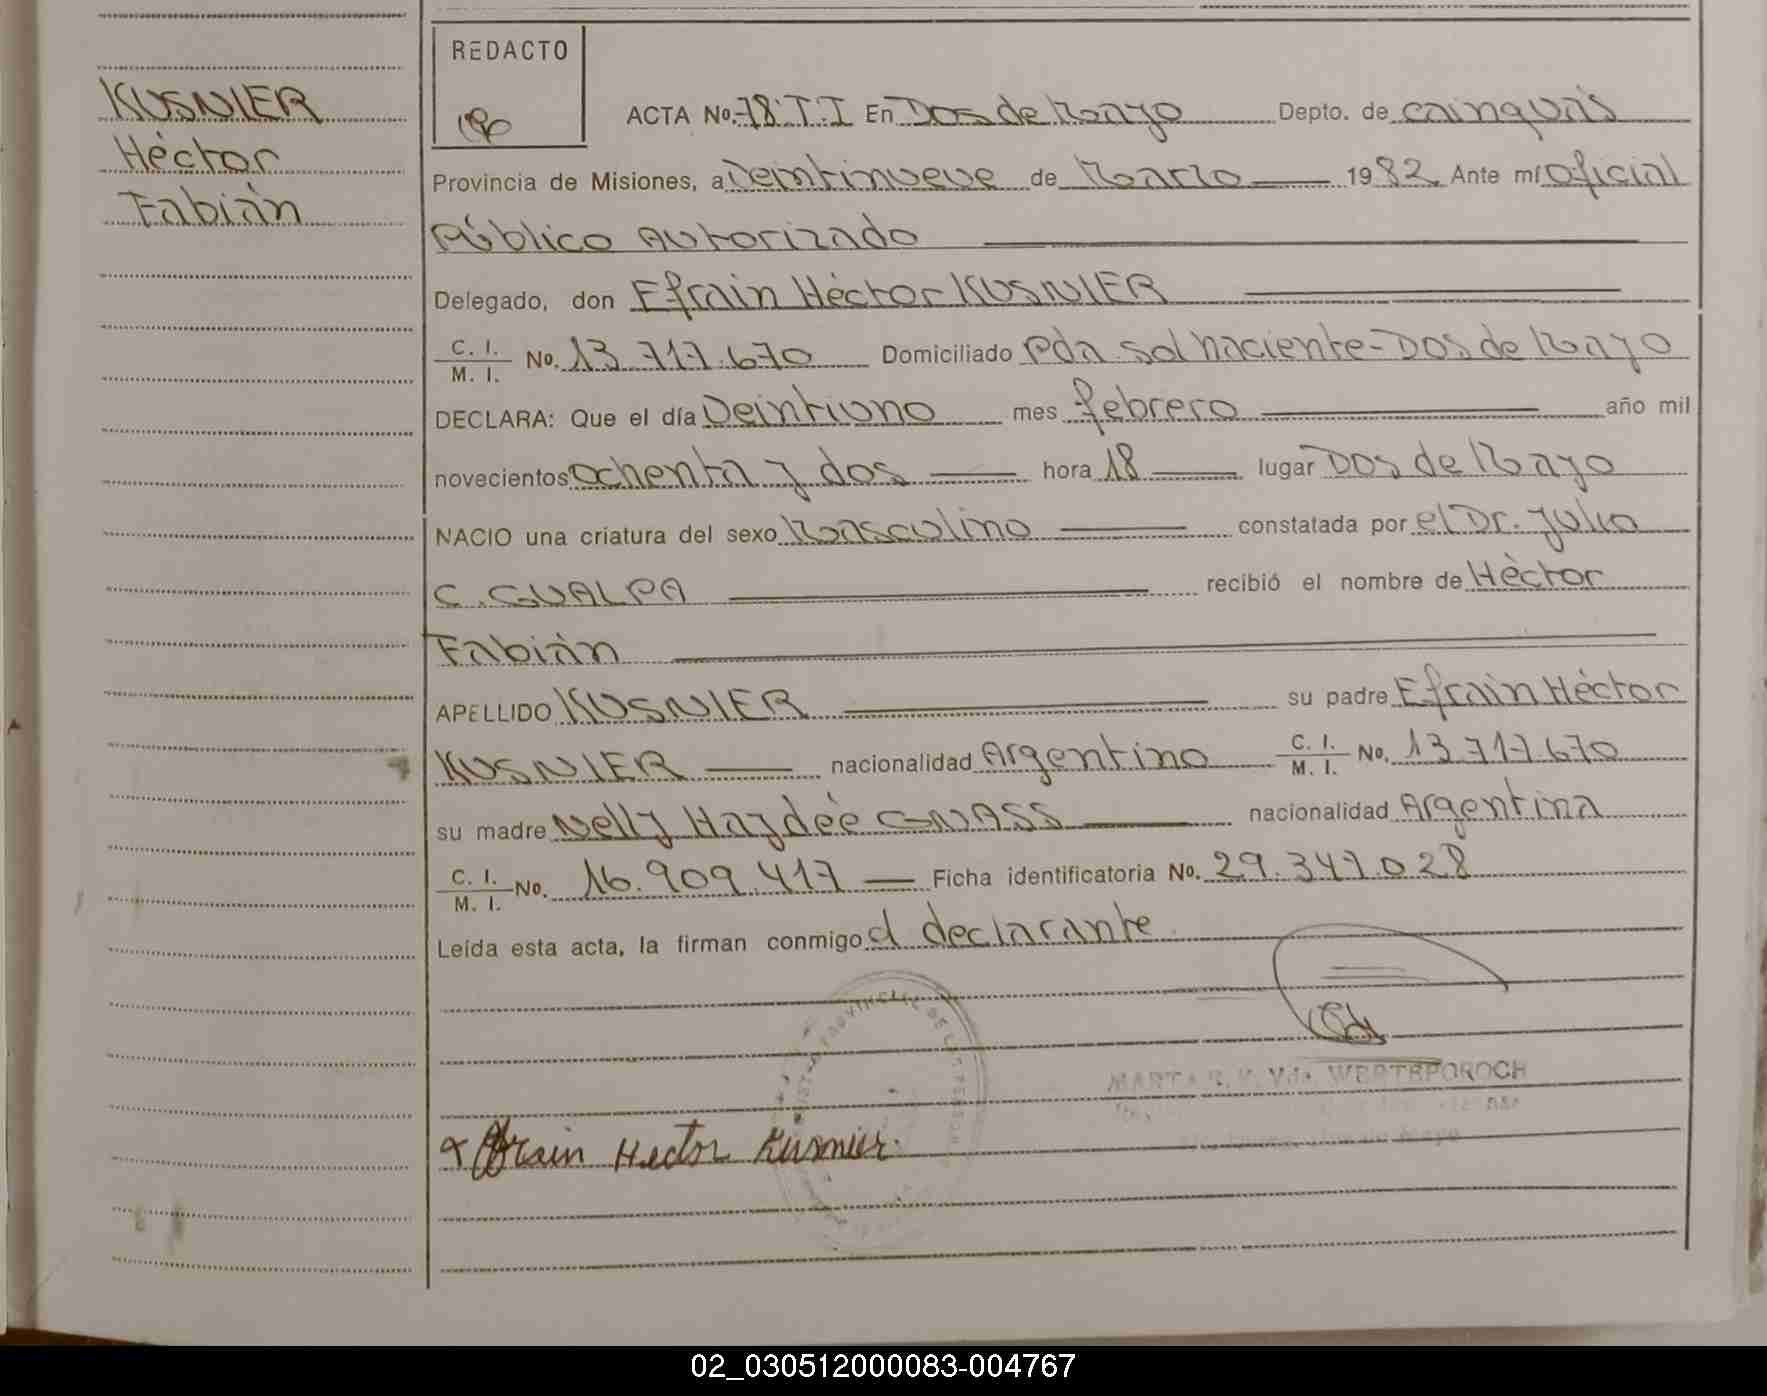 KUSNIER
Héctor
Fabián
REDACTO
ACTA No. 78 T. I En Dos de Mayo Depto. de Cainguás
Provincia de Misiones, a Veintinueve de Marzo 1982 Ante mí Oficial
Público Autorizado
Delegado, don Efrain Héctor KUSNIER
C. I.
M. I. No. 13.717.670 Domiciliado Pda. Sol Naciente-Dos de Mayo
DECLARA: Que el día Veintiuno mes febrero año mil
novecientos ochenta y dos hora 18 lugar Dos de Mayo
NACIO una criatura del sexo Masculino constatada por el Dr. Julio
C. GUALPA recibió el nombre de Héctor
Fabián
APELLIDO KUSNIER su padre Efrain Héctor
KUSNIER nacionalidad Argentino C. I. M. I. No. 13.717.670
su madre Nelly Haydée GNASS nacionalidad Argentina
C. I.
M. I. No. 16.909.417 Ficha identificatoria No. 29.347.028
Leída esta acta, la firman conmigo el declarante
Vda. WERTEPOROCH
Efrain Hector Kusnier.
02_030512000083-004767